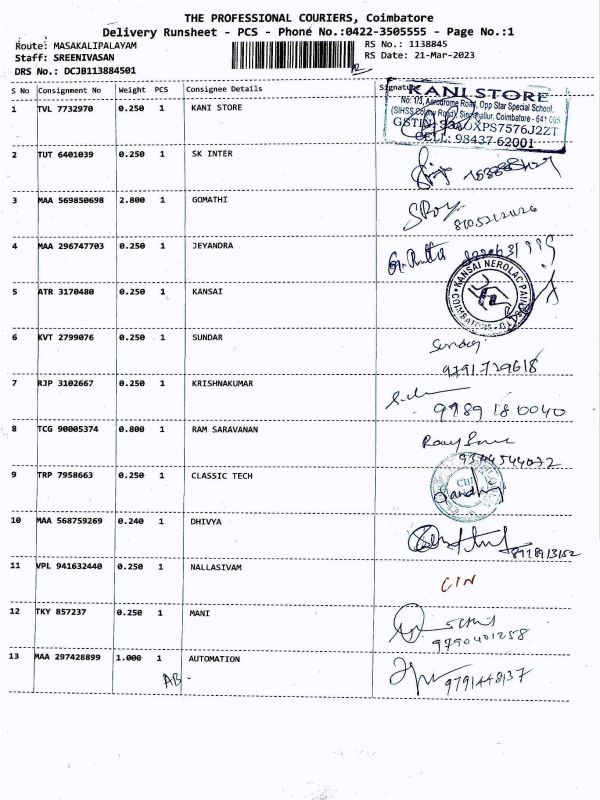 THE PROFESSIONAL COURIERS, Coimbatore
Delivery Runsheet - PCS - Phone No.:0422-3505555 - Page No.:1
Route: MASAKALIPALAYAM RS No.: 1138845
Staff: SREENIVASAN RS Date: 21-Mar-2023
DRS No.: DCJB113884501
S No Consignment No Weight PCS Consignee Details Signature
1 TVL 7732970 0.250 1 KANI STORE
KANI STORE
No: 1/3, Aerodrome Road, Opp Star Special School,
(SIHSS Colony Road), Singanallur, Coimbatore - 641 005
CELL: 98437-62001
2 TUT 6401039 0.250 1 SK INTER
3 MAA 569850698 2.800 1 GOMATHI
4 MAA 296747703 0.250 1 JEYANDRA
5 ATR 3170480 0.250 1 KANSAI
KANSAI NEROLAC PAINTS
COIMBATORE
6 KVT 2799076 0.250 1 SUNDAR
9791729618
7 RJP 3102667 0.250 1 KRISHNAKUMAR
9789180040
8 TCG 90005374 0.800 1 RAM SARAVANAN
9344544072
9 TRP 7958663 0.250 1 CLASSIC TECH
10 MAA 568759269 0.240 1 DHIVYA
11 VPL 941632440 0.250 1 NALLASIVAM
CIN
12 TKY 857237 0.250 1 MANI
9790401258
13 MAA 297428899 1.000 1 AUTOMATION
AB - 9791448137